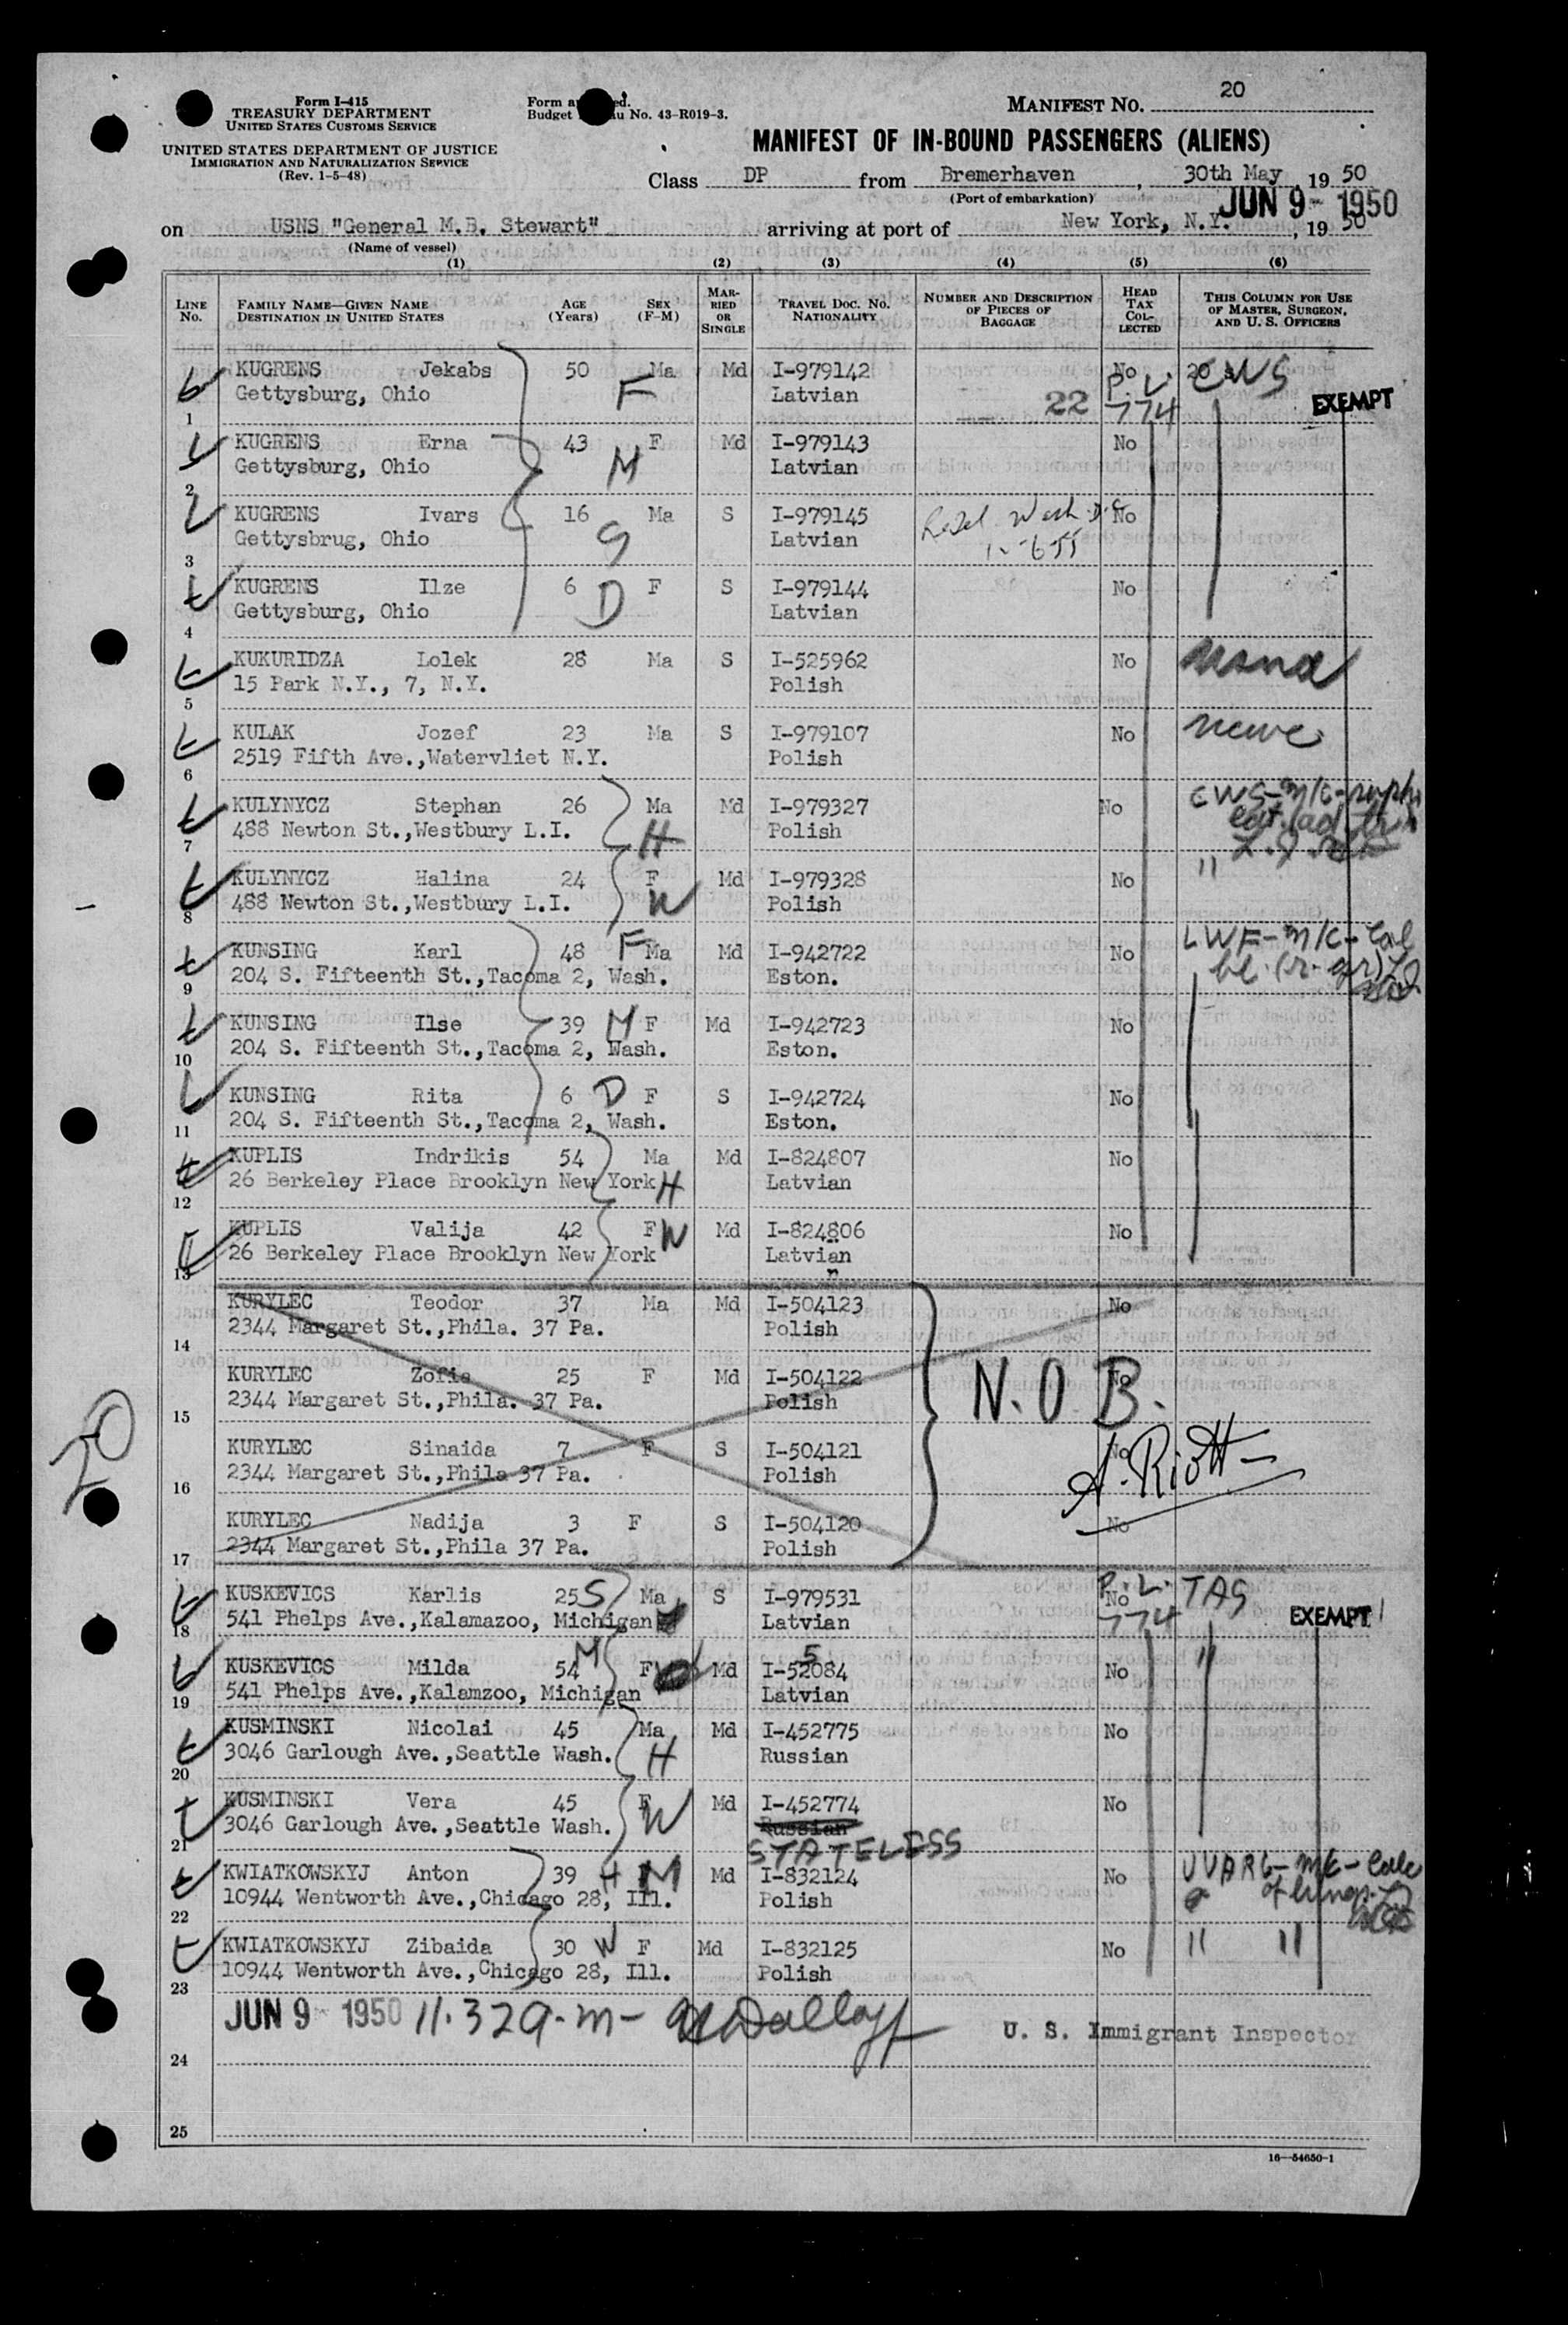 Form I-415
TREASURY DEPARTMENT
UNITED STATES CUSTOMS SERVICE
UNITED STATES DEPARTMENT OF JUSTICE
IMMIGRATION AND NATURALIZATION SERVICE
(Rev. 1-5-48)
Form a ed.
Budget u No. 43-R019-3.
MANIFEST NO. 20
MANIFEST OF IN-BOUND PASSENGERS (ALIENS)
Class DP from Bremerhaven, 30th May, 19 50
(Port of embarkation)
JUN 9 - 1950
on USNS "General M.B. Stewart" arriving at port of New York, N.Y., 19 50
(Name of vessel)
(1) (2) (3) (4) (5) (6)
LINE NO. FAMILY NAME—GIVEN NAME DESTINATION IN UNITED STATES AGE (Years) SEX (F-M) MARRIED OR SINGLE TRAVEL DOC. NO. NATIONALITY NUMBER AND DESCRIPTION OF PIECES OF BAGGAGE HEAD TAX COLLECTED THIS COLUMN FOR USE OF MASTER, SURGEON, AND U. S. OFFICERS
KUGRENS Jekabs 50 Ma Md I-979142 No 20 CWS
1 Gettysburg, Ohio F Latvian 22 P.L. 774 EXEMPT
KUGRENS Erna 43 F Md I-979143 No
2 Gettysburg, Ohio M Latvian
KUGRENS Ivars 16 Ma S I-979145 Wash. D.C No
3 Gettysbrug, Ohio S Latvian
KUGRENS Ilze 6 F S I-979144 No
4 Gettysburg, Ohio D Latvian
KUKURIDZA Lolek 28 Ma S I-525962 No usna
5 15 Park N.Y., 7, N.Y. Polish
KULAK Jozef 23 Ma S I-979107 No
6 2519 Fifth Ave.,Watervliet N.Y. Polish
KULYNYCZ Stephan 26 Ma Md I-979327 No CWS-m/c
7 488 Newton St.,Westbury L.I. H Polish
KULYNYCZ Halina 24 F Md I-979328 No "
8 488 Newton St.,Westbury L.I. W Polish
KUNSING Karl 48 F Ma Md I-942722 No LWF-m/c-Col
9 204 S. Fifteenth St.,Tacoma 2, Wash. Eston. bl. (r-gr)
KUNSING Ilse 39 M F Md I-942723 No
10 204 S. Fifteenth St.,Tacoma 2, Wash. Eston.
KUNSING Rita 6 D F S I-942724 No
11 204 S. Fifteenth St.,Tacoma 2, Wash. Eston.
KUPLIS Indrikis 54 Ma Md I-824807 No
12 26 Berkeley Place Brooklyn New York H Latvian
KUPLIS Valija 42 F W Md I-824806 No
13 26 Berkeley Place Brooklyn New York Latvian
KURYLEC Teodor 37 Ma Md I-504123 No
14 2344 Margaret St.,Phila. 37 Pa. Polish
KURYLEC Zofia 25 F Md I-504122 N.O.B. No
15 2344 Margaret St.,Phila. 37 Pa. Polish
KURYLEC Sinaida 7 F S I-504121 No
16 2344 Margaret St.,Phila 37 Pa. Polish A. Riott
KURYLEC Nadija 3 F S I-504120 No
17 2344 Margaret St.,Phila 37 Pa. Polish
20
KUSKEVICS Karlis 25 S Ma S I-979531 P.L. No TAS
18 541 Phelps Ave.,Kalamazoo, Michigan Latvian 774 EXEMPT
KUSKEVICS Milda 54 M F Md I-52084 5 No "
19 541 Phelps Ave.,Kalamzoo, Michigan Latvian
KUSMINSKI Nicolai 45 Ma Md I-452775 No
20 3046 Garlough Ave.,Seattle Wash. H Russian
KUSMINSKI Vera 45 F Md I-452774 No
21 3046 Garlough Ave.,Seattle Wash. W Russian
STATELESS
KWIATKOWSKYJ Anton 39 H M Md I-832124 No UUARC-m/c-Calc
22 10944 Wentworth Ave.,Chicago 28, Ill. Polish of lungs
KWIATKOWSKYJ Zibaida 30 W F Md I-832125 No " "
23 10944 Wentworth Ave.,Chicago 28, Ill. Polish
JUN 9 - 1950 11.32 a.m- U. S. Immigrant Inspector
24
25
16—54650-1